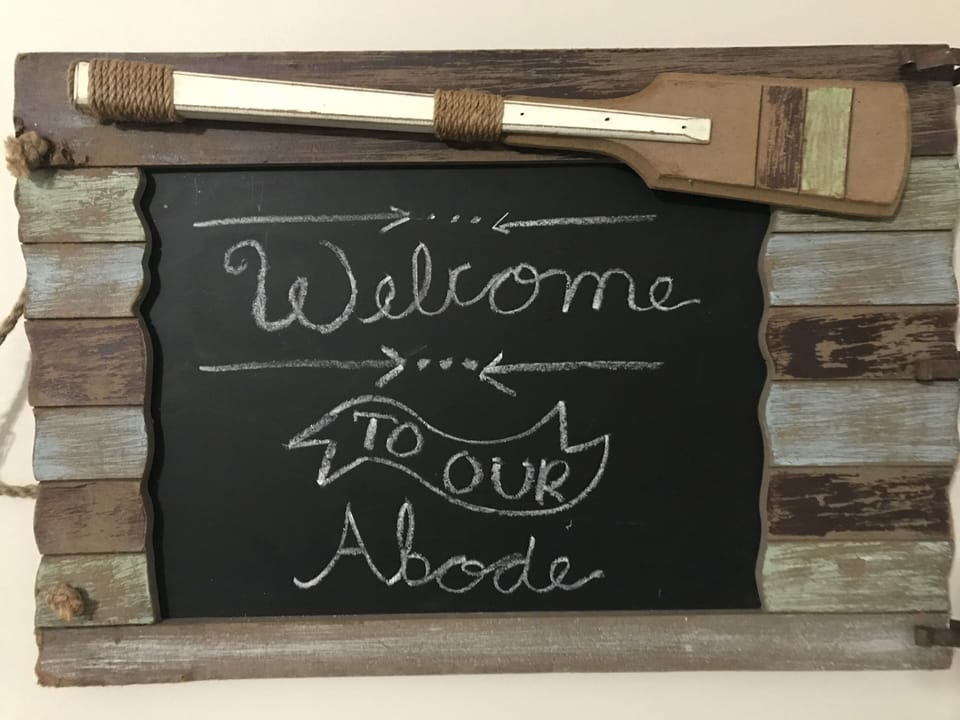 Welcome
TO OUR
Abode